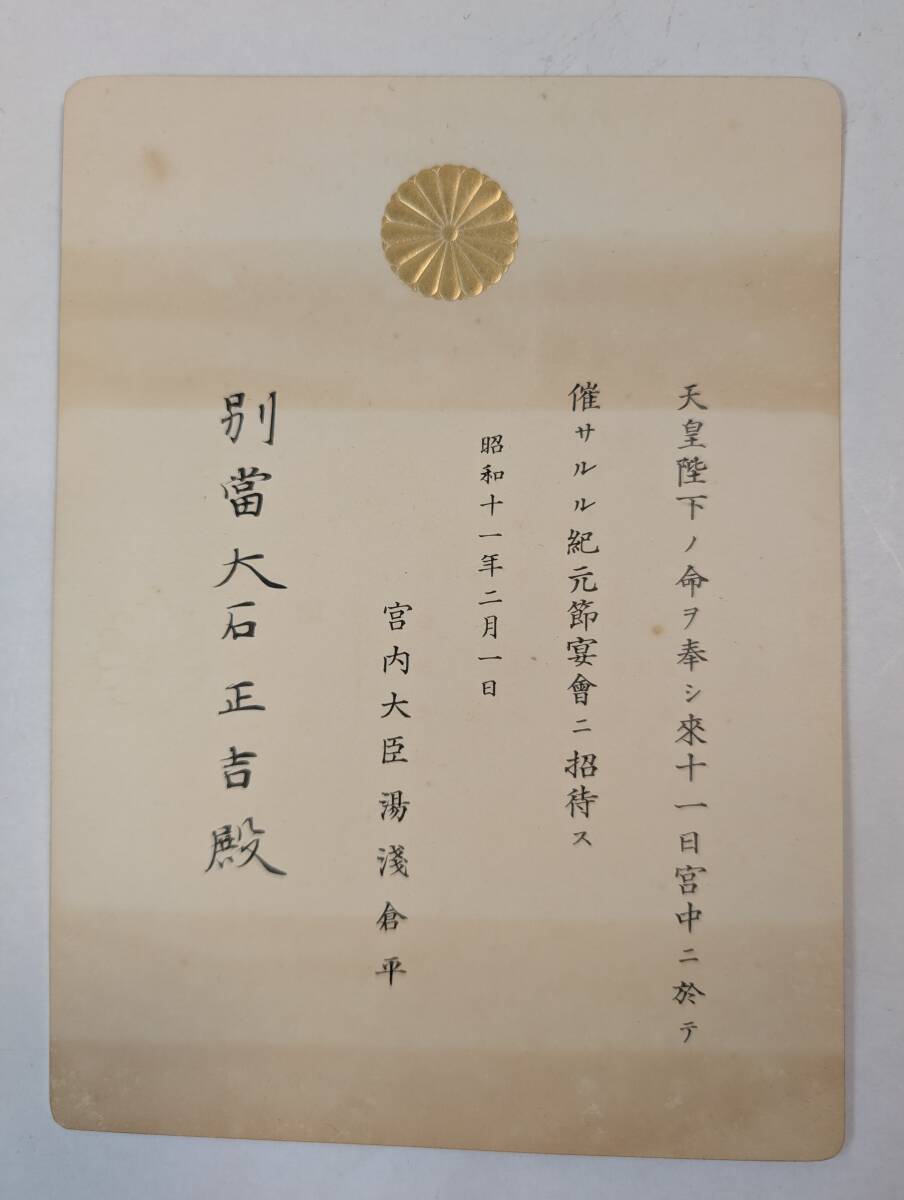 天皇陛下ノ命ヲ奉シ來十一日宮中ニ於テ
催サルル紀元節宴會ニ招待ス
昭和十一年二月一日
宮内大臣湯淺倉平
別當大石正吉殿